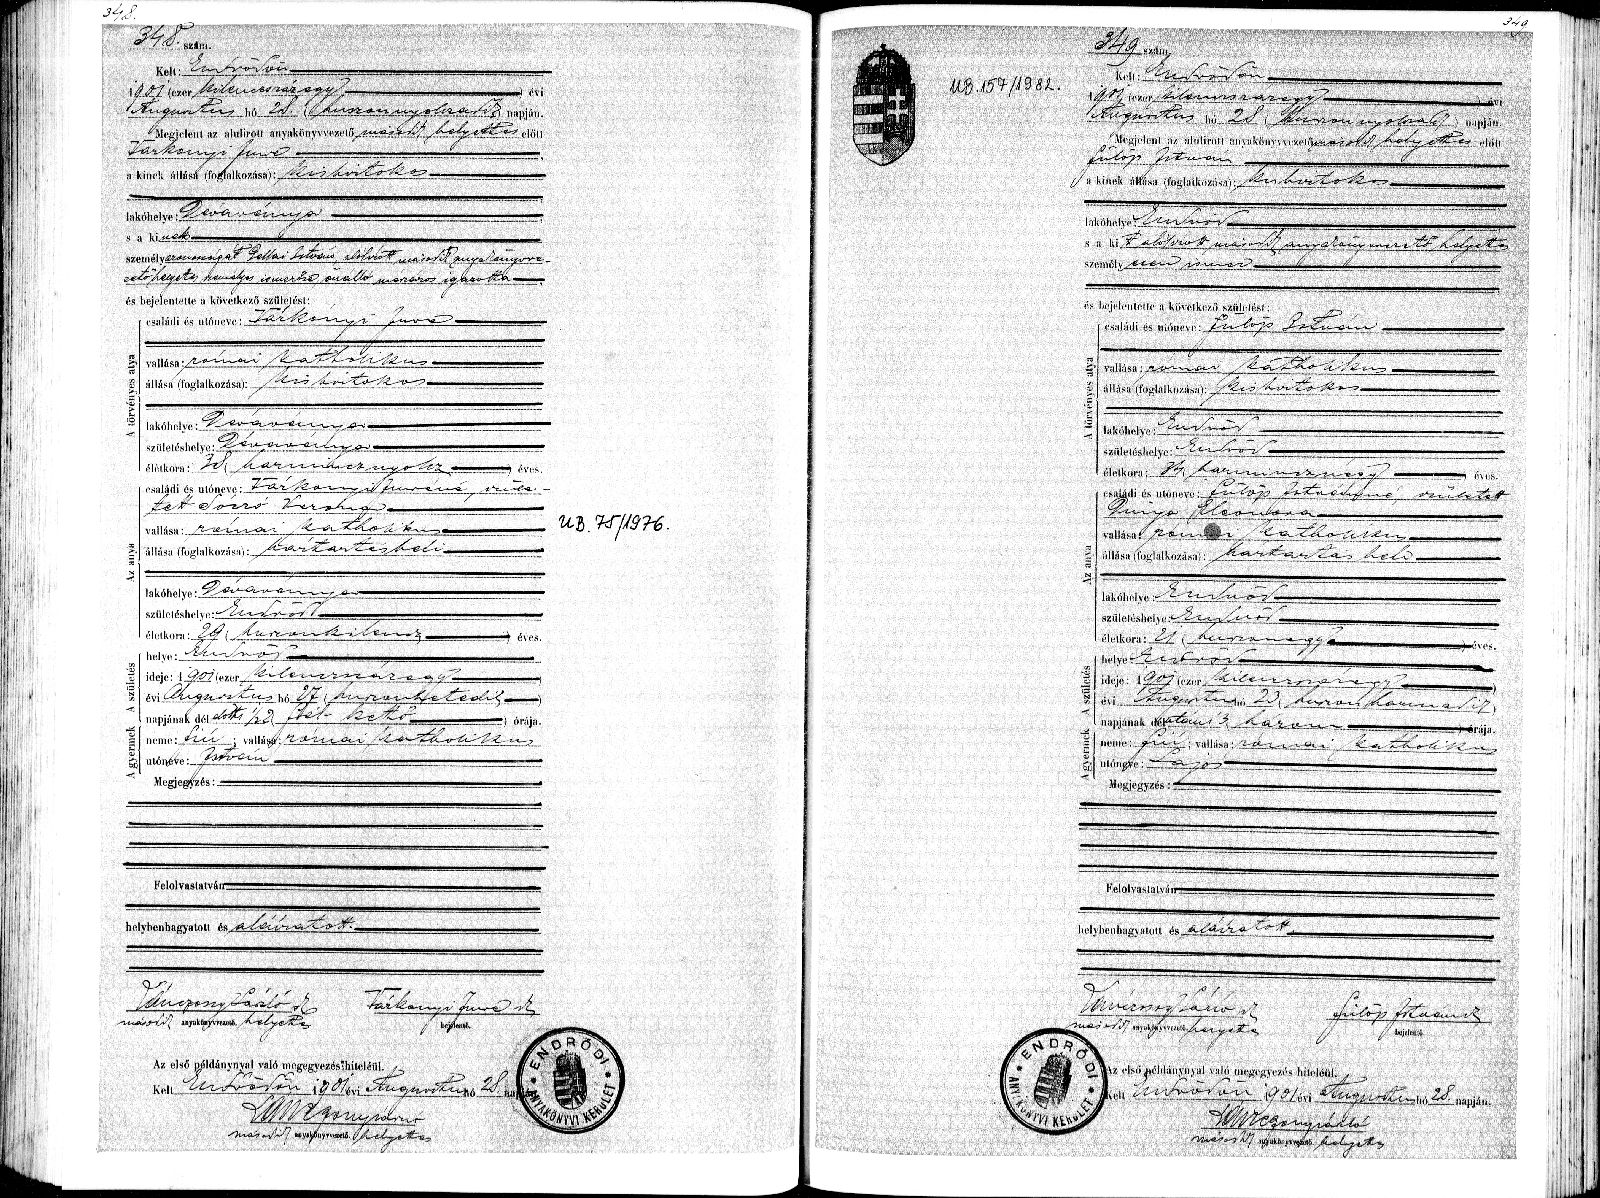 348.
348. szám.
Kelt: Endrődön
1901 (ezer kilenczszázegy) évi
Augusztus hó 28. (huszonnyolczadik) napján.
Megjelent az alulirott anyakönyvvezető másodh. helyettes előtt
Várkonyi Imre
a kinek állása (foglalkozása): kisbirtokos
lakóhelye: Dévaványa
s a kinek
személyazonosságát István, alólirott másodh. anyakönyvve-
zető helyettes személyes ismerőse önálló igazolta
és bejelentette a következő születést:
A törvényes atya
családi és utóneve: Várkonyi Imre
vallása: római katholikus
állása (foglalkozása): kisbirtokos
lakóhelye: Dévaványa
születéshelye: Dévaványa
életkora: 38 (harmincznyolcz) éves.
Az anya
családi és utóneve: Várkonyi Imréné, szüle-
tett Veronа
vallása: római katholikus
állása (foglalkozása): háztartásbeli
lakóhelye: Dévaványa
születéshelye: Endrőd
életkora: 29 (huszonkilencz) éves.
A gyermek A születés
helye: Endrőd
ideje: 1901 (ezer kilenczszázegy)
évi Augusztus hó 27 (huszonhetedik)
napjának dél előtti 1/22 (fél kettő) órája.
neme: fiú; vallása: római katholikus
utóneve: István
Megjegyzés:
Felolvastatván
helybenhagyatott és aláíratott.
László Várkonyi Imre
másodh. anyakönyvvezető. helyettes bejelentő.
Az első példánynyal való megegyezés hiteléül.
Kelt Endrődön 1901 évi Augusztus hó 28. napján.
másodh. anyakönyvvezető. helyettes
ENDRŐDI ANYAKÖNYVI KERÜLET
UB. 75/1976.
349
349 szám.
UB. 157/1982.
Kelt: Endrődön
1901 (ezer kilenczszázegy) évi
Augusztus hó 28 (huszonnyolczadik) napján.
Megjelent az alulirott anyakönyvvezető másodh. helyettes előtt
Fülöp István
a kinek állása (foglalkozása): kisbirtokos
lakóhelye: Endrőd
s a kit alólirott másodh. anyakönyvvezető helyettes
személyesen ismer
és bejelentette a következő születést:
A törvényes atya
családi és utóneve: Fülöp István
vallása: római katholikus
állása (foglalkozása): kisbirtokos
lakóhelye: Endrőd
születéshelye: Endrőd
életkora: 34 (harmincznégy) éves.
Az anya
családi és utóneve: Fülöp Istvánné, született
Dinya Eleonora
vallása: római katholikus
állása (foglalkozása): háztartásbeli
lakóhelye: Endrőd
születéshelye: Endrőd
életkora: 21 (huszonegy) éves.
A gyermek A születés
helye: Endrőd
ideje: 1901 (ezer kilenczszázegy)
évi Augusztus hó 23 (huszonharmadik)
napjának délutáni 3 (három) órája.
neme: fiú; vallása: római katholikus
utóneve: Lajos
Megjegyzés:
Felolvastatván
helybenhagyatott és aláíratott.
László Fülöp István
másodh. anyakönyvvezető. helyettes bejelentő.
Az első példánynyal való megegyezés hiteléül.
Kelt Endrődön 1901 évi Augusztus hó 28. napján.
másodh. anyakönyvvezető. helyettes
ENDRŐDI ANYAKÖNYVI KERÜLET